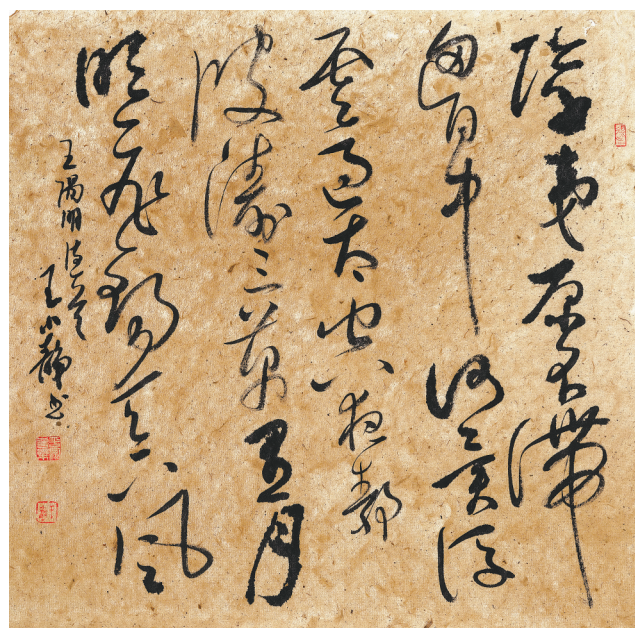 險夷原不滯
胸中何異浮
雲過太空夜靜
海濤三萬里月
明飛錫下天風
王陽明詩 王小靜書